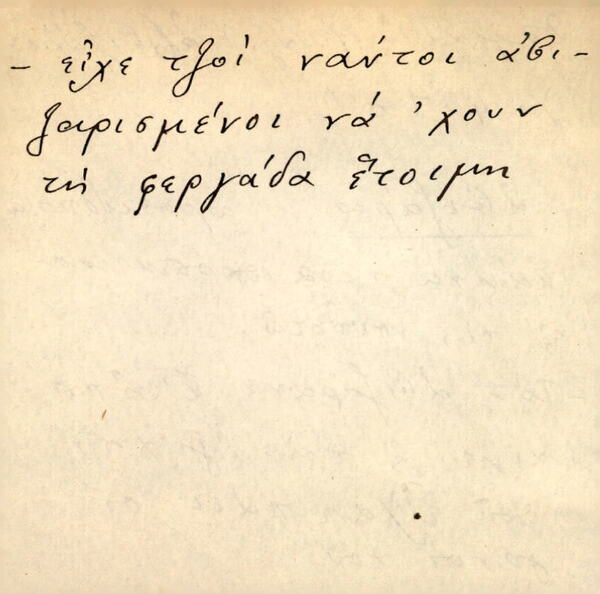 - εἶχε τζοὶ ναύτοι ἀβι-
ζαρισμένοι νά 'χουν
τὴ φεργάδα ἕτοιμη